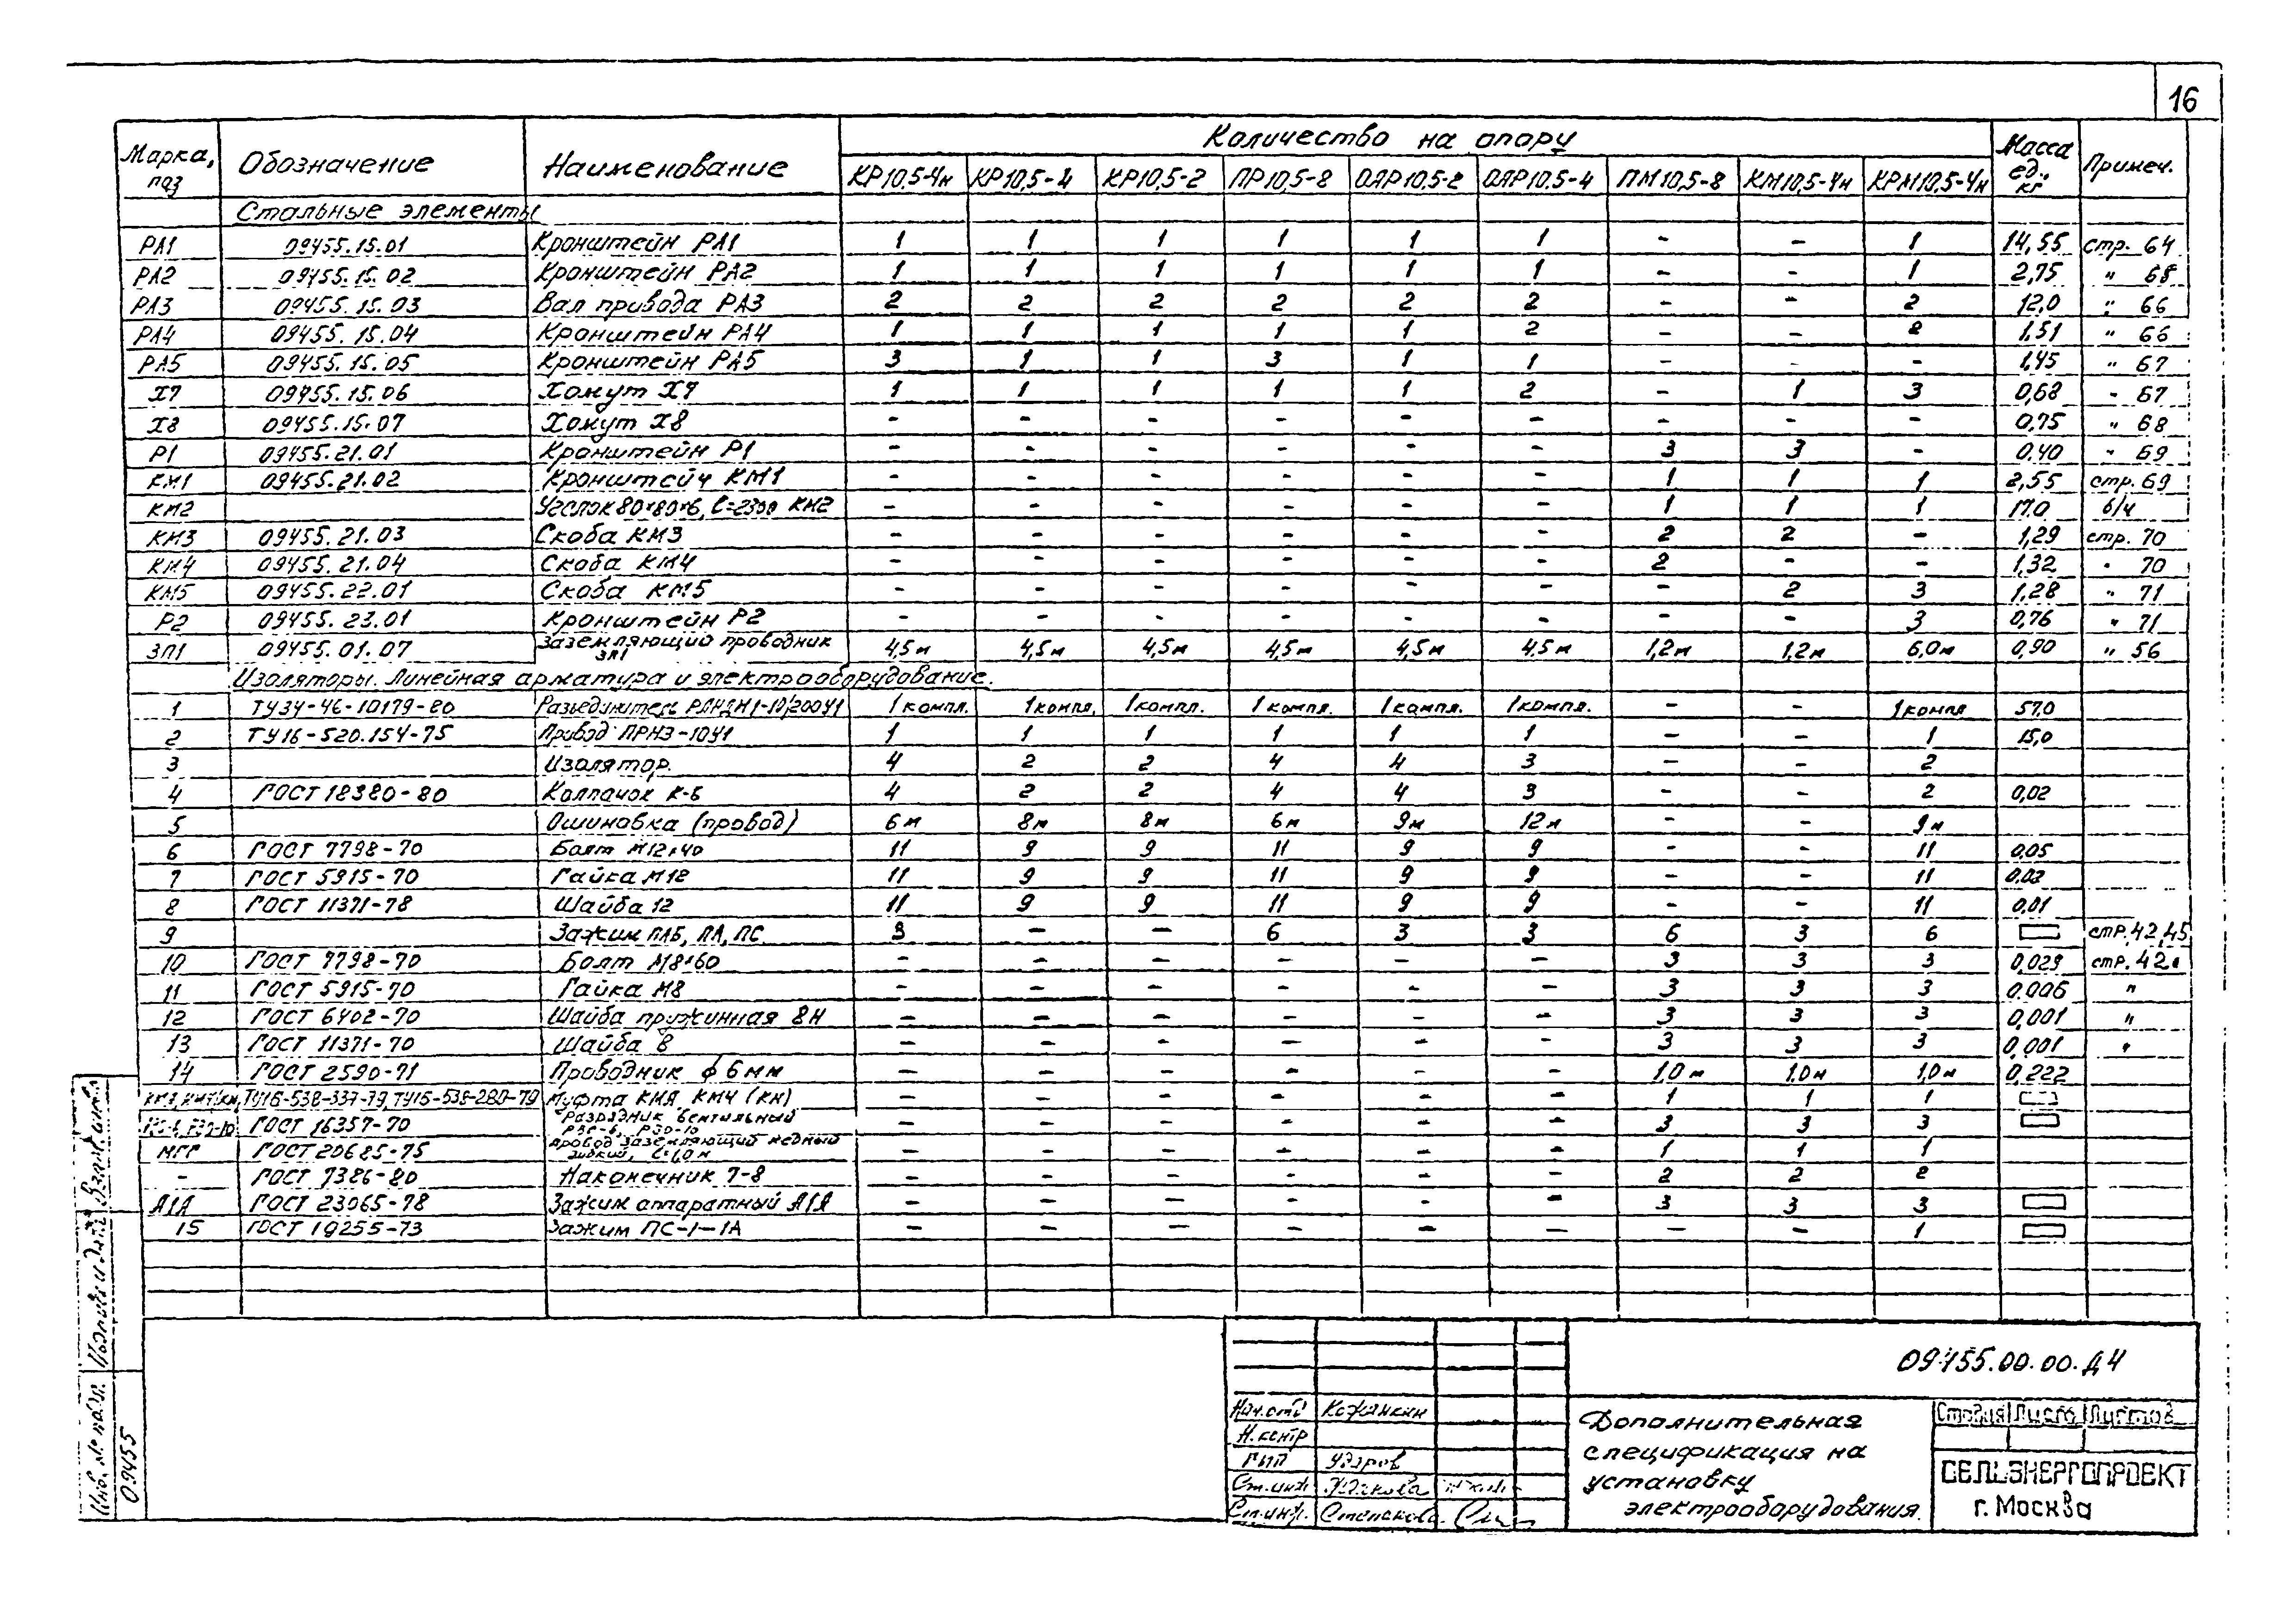 16
Марка, поз Обозначение Наименование Количество на опору Масса ед., кг Примеч.
КР10,5-4н КР10,5-4 КР10,5-2 ПР10,5-8 ОАР10,5-2 ОАР10,5-4 ПМ10,5-8 КМ10,5-4н КРМ10,5-4н
Стальные элементы
РА1 09455.15.01 Кронштейн РА1 1 1 1 1 1 1 - - 1 14,55 стр. 64
РА2 09455.15.02 Кронштейн РА2 1 1 1 1 1 1 - - 1 2,75 " 68
РА3 09455.15.03 Вал привода РА3 2 2 2 2 2 2 - - 2 12,0 " 66
РА4 09455.15.04 Кронштейн РА4 1 1 1 1 1 2 - - 2 1,51 " 66
РА5 09455.15.05 Кронштейн РА5 3 1 1 3 1 1 - - - 1,45 " 67
Х7 09455.15.06 Хомут Х7 1 1 1 1 1 2 - 1 3 0,68 " 67
Х8 09455.15.07 Хомут Х8 - - - - - - - - - 0,75 " 68
Р1 09455.21.01 Кронштейн Р1 - - - - - - 3 3 - 0,40 " 69
КМ1 09455.21.02 Кронштейн КМ1 - - - - - - 1 1 1 2,55 стр. 69
КМ2 Уголок 80×80×6, ℓ=2300 КМ2 - - - - - - 1 1 1 17,0 б/ч
КМ3 09455.21.03 Скоба КМ3 - - - - - - 2 2 - 1,29 стр. 70
КМ4 09455.21.04 Скоба КМ4 - - - - - - 2 - - 1,32 " 70
КМ5 09455.22.01 Скоба КМ5 - - - - - - - 2 3 1,28 " 71
Р2 09455.23.01 Кронштейн Р2 - - - - - - - - 3 0,76 " 71
ЗП1 09455.01.07 Заземляющий проводник ЗП1 4,5м 4,5м 4,5м 4,5м 4,5м 4,5м 1,2м 1,2м 6,0м 0,90 " 56
Изоляторы. Линейная арматура и электрооборудование.
1 ТУ34-46-10179-80 Разъединитель РЛНДМ1-10/200У1 1 компл. 1 компл. 1 компл. 1 компл. 1 компл. 1 компл. - - 1 компл 57,0
2 ТУ16-520.154-75 Привод ПРНЗ-10У1 1 1 1 1 1 1 - - 1 15,0
3 Изолятор. 4 2 2 4 4 3 - - 2
4 ГОСТ 18380-80 Колпачок К-6 4 2 2 4 4 3 - - 2 0,02
5 Ошиновка (провод) 6м 8м 8м 6м 9м 12м - - 9м
6 ГОСТ 7798-70 Болт М12×40 11 9 9 11 9 9 - - 11 0,05
7 ГОСТ 5915-70 Гайка М12 11 9 9 11 9 9 - - 11 0,02
8 ГОСТ 11371-78 Шайба 12 11 9 9 11 9 9 - - 11 0,01
9 Зажим ПАБ, ПА, ПС 3 - - 6 3 3 6 3 6 стр.42,45
10 ГОСТ 7798-70 Болт М8×60 - - - - - - 3 3 3 0,029 стр. 42
11 ГОСТ 5915-70 Гайка М8 - - - - - - 3 3 3 0,006 "
12 ГОСТ 6402-70 Шайба пружинная 8Н - - - - - - 3 3 3 0,001 "
13 ГОСТ 11371-70 Шайба 8 - - - - - - 3 3 3 0,001 "
14 ГОСТ 2590-71 Проводник ф 6мм - - - - - - 1,0м 1,0м 1,0м 0,222
ТУ16-538-337-79, ТУ16-538-280-79 Муфта КМА КМЧ (КН) - - - - - - 1 1 1
ГОСТ 16357-70 Разрядник вентильный - - - - - - 3 3 3
МГГ ГОСТ 20685-75 Провод заземляющий медный гибкий, ℓ=1,0м - - - - - - 1 1 1
- ГОСТ 7386-80 Наконечник 7-8 - - - - - - 2 2 2
А1А ГОСТ 23065-78 Зажим аппаратный А1А - - - - - - 3 3 3
15 ГОСТ 19255-73 Зажим ПС-1-1А - - - - - - - - 1
09455.00.00.Д4
Нач.отд Кожанкин
Н.контр
ГИП Ударов
Ст.инж.
Ст.инж. Степанова
Дополнительная
спецификация на
установку
электрооборудования.
Стадия Лист Листов
СЕЛЬЭНЕРГОПРОЕКТ
г. Москва
Инв. № подл. Подпись и дата Взам. инв.
09455